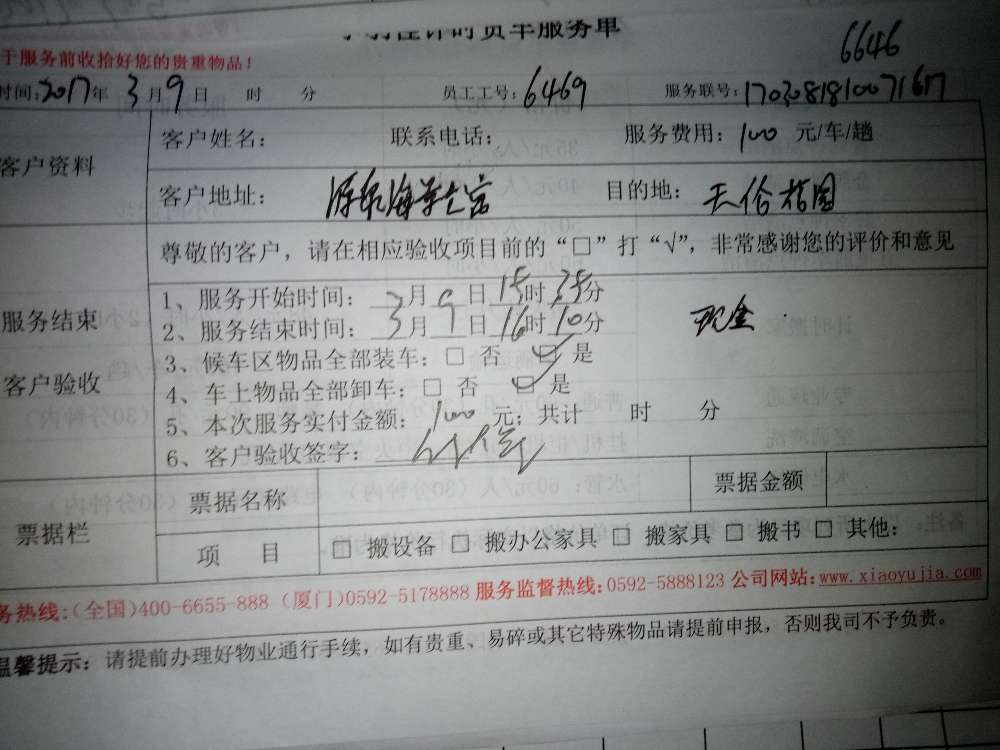 计时货车服务单
6646
于服务前收拾好您的贵重物品！
时间：2017年3月9日 时 分 员工工号：6469 服务联号：
客户资料
客户姓名： 联系电话： 服务费用：100 元/车/趟
客户地址： 目的地：
尊敬的客户，请在相应验收项目前的“□”打“√”，非常感谢您的评价和意见
服务结束
客户验收
1、服务开始时间：3月9日15时35分
2、服务结束时间：3月9日16时10分
现金
3、候车区物品全部装车：□ 否 ☑ 是
4、车上物品全部卸车：□ 否 ☑ 是
5、本次服务实付金额：100元；共计 时 分
6、客户验收签字：
票据栏
票据名称 票据金额
项 目 □ 搬设备 □ 搬办公家具 □ 搬家具 □ 搬书 □ 其他：
务热线：(全国)400-6655-888 (厦门)0592-5178888 服务监督热线：0592-5888123 公司网站：www.xiaoyujia.com
温馨提示：请提前办理好物业通行手续，如有贵重、易碎或其它特殊物品请提前申报，否则我司不予负责。